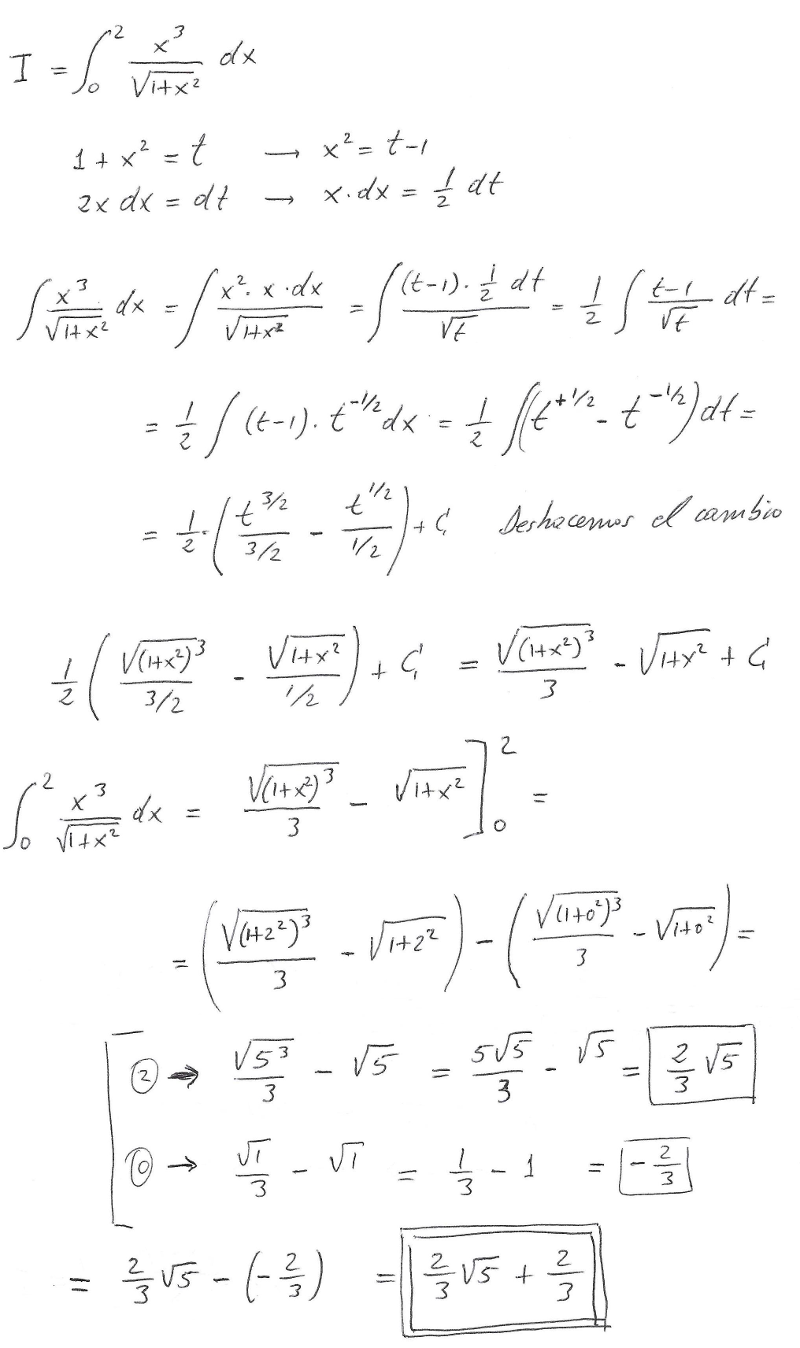 I = ∫₀² x³/√(1+x²) dx
1 + x² = t → x² = t-1
2x dx = dt → x·dx = 1/2 dt
∫ x³/√(1+x²) dx = ∫ x²·x·dx/√(1+x²) = ∫ (t-1)·1/2 dt/√t = 1/2 ∫ (t-1)/√t dt =
= 1/2 ∫ (t-1)·t^(-1/2) dx = 1/2 ∫(t^(+1/2) - t^(-1/2))dt =
= 1/2·(t^(3/2)/(3/2) - t^(1/2)/(1/2)) + C Deshacemos el cambio
1/2 (√(1+x²)³/(3/2) - √(1+x²)/(1/2)) + C = √(1+x²)³/3 - √(1+x²) + C
∫₀² x³/√(1+x²) dx = √(1+x²)³/3 - √(1+x²) ]₀² =
= (√(1+2²)³/3 - √(1+2²)) - (√(1+0²)³/3 - √(1+0²)) =
② → √5³/3 - √5 = 5√5/3 - √5 = 2/3 √5
⓪ → √1/3 - √1 = 1/3 - 1 = -2/3
= 2/3 √5 - (-2/3) = 2/3 √5 + 2/3